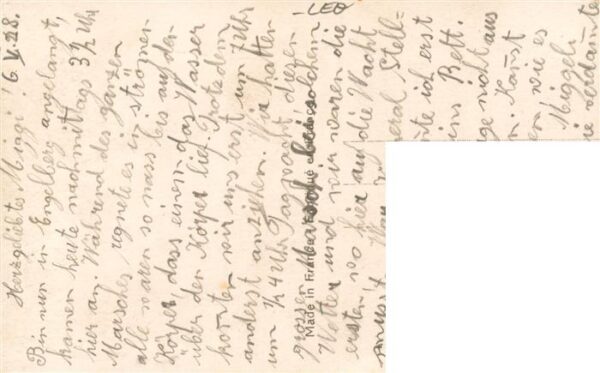 Herzgeliebtes Miggi! 6.V.28.
Bin nun in Engelberg angelangt,
kamen heute nachmittags 3½ Uhr
hier an. Während des ganzen
Marsches regnete es in strömen
alle waren so nass bis auf den
Körper dass einem das Wasser
über den Körper lief. Trotzdem
konten wir uns erst um 7 Uhr
anderst anziehen. Wir hatten
um ¼4 Uhr Tagwacht diesen
grossen Marsch bei solchem
LEO
Made in France
Wetter und wir waren die
ersten wo hier auf die Wacht
eral Stell-
te ich erst
ins Bett.
ge nicht aus
n. Kanst
en wie es
Miggeli
ie verdamte